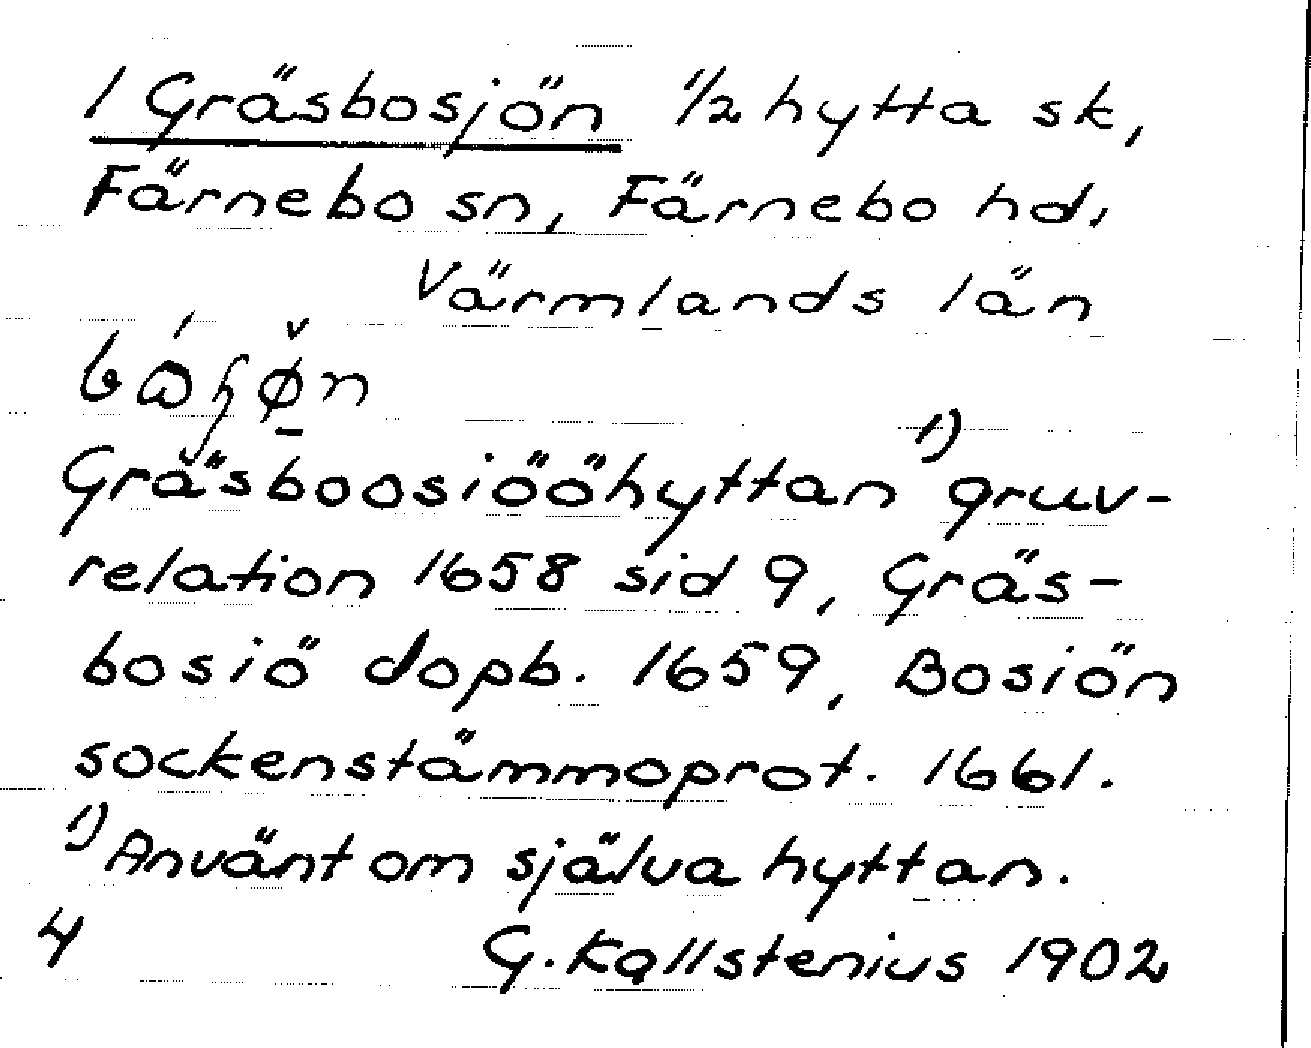 1 Gräsbosjön 1/2 hytta sk,
Färnebo sn, Färnebo hd,
Värmlands län
Gräsboosiööhyttan 1) gruv-
relation 1658 sid 9, Gräs-
bosiö dopb. 1659, Bosiön
sockenstämmoprot. 1661.
1) Använt om själva hyttan.
4 G. Kallstenius 1902